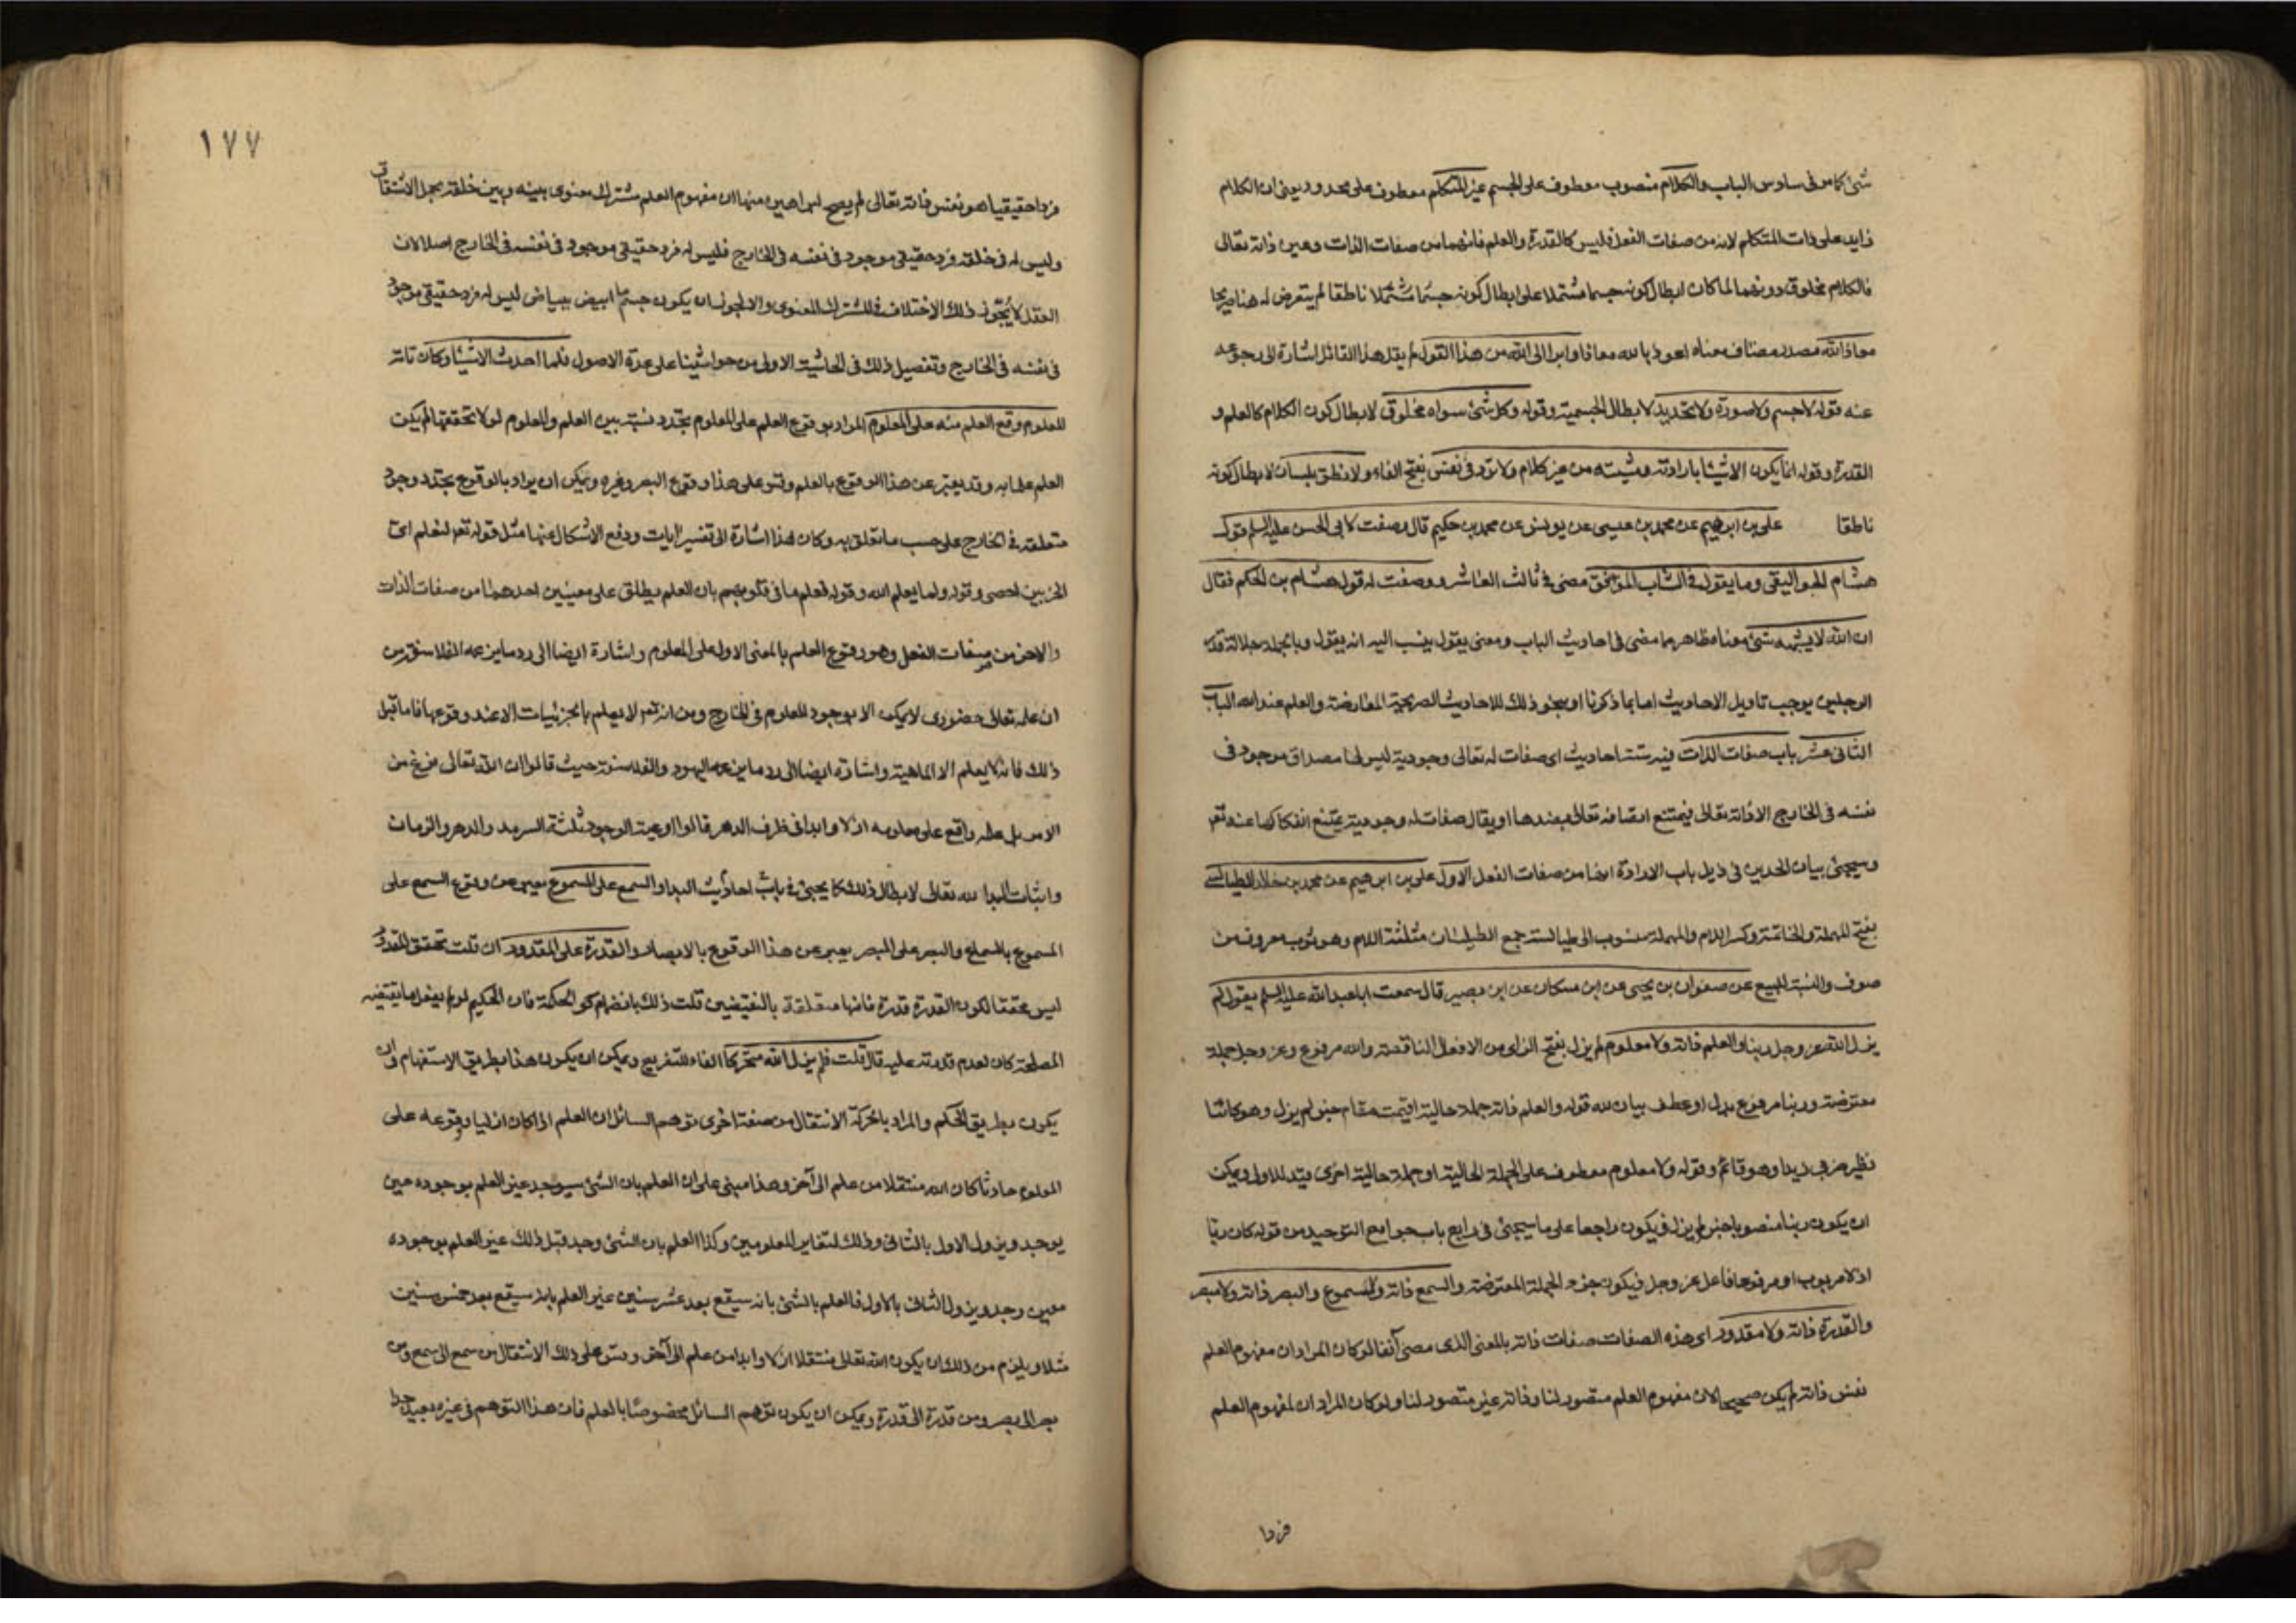 شئ كما مر فى سادس الباب والكلام منصوب معطوف على الجسم غير المتكلم معطوف على محدود يعنى ان الكلام
زايد على ذات المتكلم لانه من صفات الفعل فليس كالقدرة والعلم فانهما من صفات الذات وعين ذاته تعالى
فالكلام مخلوق دونهما لما كان ابطال كونه جسما مشتملا على ابطال كونه جسما متكلما ناطقا لم يتعرض له هنا صريحا
معاذ الله مصدر مضاف معناه اعوذ بالله معاذا وابرا الى الله من هذا القول لم يقل هذا القائل اشارة الى رجوعه
عنه قوله لا جسم ولا صورة ولا تحديد لابطال الجسمية وقوله وكل شئ سواه مخلوق لابطال كون الكلام كالعلم و
القدرة وقوله انما يكون الاشيا بارادته ومشيته من غير كلام ولا تردد فى نفس بفتح الفاء ولا نطق بلسان لابطال كونه
ناطقا على بن ابرهيم عن محمد بن عيسى عن يونس عن محمد بن حكيم قال وصفت لابى الحسن عليه السلم قول
هشام الجواليقى وما يقول فى الشاب الموفق مضى فى ثالث العاشر ووصفت له قول هشام بن الحكم فقال
ان الله لا يشبهه شئ معناه ظاهر مما مضى فى احاديث الباب ومعنى يقول ينسب اليه انه يقول وبالجملة جلالة قدر
الرجلين يوجب تاويل الاحاديث اما بما ذكرنا او بنحو ذلك للاحاديث الصريحة المعارضة والعلم عند الله الباب
الثانى عشر باب صفات الذات فيه ستة احاديث اى صفات له تعالى وجودية ليس لها مصداق موجود فى
نفسه فى الخارج الا ذاته تعالى فيمتنع اتصافه تعالى بضدها او يقال صفات له وجودية يمتنع انفكاكها عنه تعر
وسيجئ بيان الحدين فى ذيل باب الارادة انها من صفات الفعل الاول على بن ابرهيم عن محمد بن خالد الطيالسى
بفتح المهملة والخاتمة وكسر اللام والمهملة منسوب الى طيالسة جمع الطيلسان مثلثة اللام وهو ثوب معروف من
صوف والنسبة للبيع عن صفوان بن يحيى عن ابن مسكان عن ابى بصير قال سمعت ابا عبد الله عليه السلم يقول لم
يزل الله عز وجل ربنا والعلم ذاته ولا معلوم لم يزل بفتح الزاى من الافعال الناقصة والله مرفوع وعز وجل جملة
معترضة وربنا مرفوع بدل او عطف بيان لله قوله والعلم ذاته جملة حالية اقيمت مقام خبر لم يزل وهو كائنا
نظير ضربى زيدا وهو قائم وقوله ولا معلوم معطوف على الجملة الحالية او جملة حالية اخرى قيد للاولى ويمكن
ان يكون ربنا منصوبا خبر لم يزل فيكون راجعا على ما سيجئ فى رابع باب جوامع التوحيد من قوله كان ربا
اذ لا مربوب او مرفوعا فاعل عز وجل فيكون جزء الجملة المعترضة والسمع ذاته ولا مسموع والبصر ذاته ولا مبصر
والقدرة ذاته ولا مقدور اى هذه الصفات صفات ذاته بالمعنى الذى مضى آنفا لو كان المراد ان مفهوم العلم
نفس ذاته لم يكن صحيحا لان مفهوم العلم متصور لنا وذاته غير متصور لنا ولو كان المراد ان لمفهوم العلم
فردا
١٧٧
فردا حقيقيا هو نفس ذاته تعالى لم يصح لبراهين منها ان مفهوم العلم مشترك معنوى بينه وبين خلقه بحمل الاشتقاق
وليس له فى خلقه فرد حقيقى موجود فى نفسه فى الخارج فليس له فرد حقيقى موجود فى نفسه فى الخارج اصلا لان
العقل لا يجوز ذلك الاختلاف فى المشترك المعنوى والا لجوز ان يكون جسم ما ابيض ببياض ليس له فرد حقيقى موجود
فى نفسه فى الخارج وتفصيل ذلك فى الحاشية الاولى من حواشينا على عدة الاصول فلما احدث الاشيا وكان ذاته
المعلوم وقع العلم منه على المعلوم المراد بوقوع العلم على المعلوم تجدد نسبة بين العلم والمعلوم لولا تحققها لم يكن
العلم علما به وقد يعبر عن هذا الوقوع بالعلم وقس على هذا وقوع البصر وغيره ويمكن ان يراد بالوقوع تجدد وجود
متعلقه فى الخارج على حسب ما تعلق به وكان هذا اشارة الى تفسير ايات ودفع الاشكال عنها مثل قوله تعر لنعلم اى
الحزبين احصى وقوله ولما يعلم الله وقوله فعلم ما فى قلوبهم بان العلم يطلق على معنيين احدهما من صفات الذات
والاخر من صفات الفعل وهو وقوع العلم بالمعنى الاول على المعلوم واشارة ايضا الى رد ما يزعمه الفلاسفة من
ان علمه تعالى حضورى لا يمكن الا بوجود المعلوم فى الخارج ومن انه تعر لا يعلم بالجزئيات الا عند وقوعها فاما قبل
ذلك فانه لا يعلم الا الماهية واشارة ايضا الى رد ما يزعمه اليهود والفلاسفة حيث قالوا ان الله تعالى فرغ من
الامر بل علمه واقع على معلومه ازلا وابدا فى ظرف الدهر قالوا اوعية الوجود ثلثة السرمد والدهر والزمان
واثبات البدا لله تعالى لابطال ذلك كما يجئ فى باب احاديث البدا والسمع على المسموع يعبر عن وقوع السمع على
المسموع بالسماع والبصر على المبصر يعبر عن هذا الوقوع بالابصار والقدرة على المقدور ان قلت تحقق المقدور
ليس محققا لكون القدرة قدرة فانها متعلقة بالنقيضين قلت ذلك بانضمام كون الحكمة فان الحكيم لو لم يفعل ما يقتضيه
المصلحة كان لعدم قدرته عليه قال قلت فلم يزل الله متحركا الفاء للتفريع ويمكن ان يكون هذا بطريق الاستفهام وان
يكون بطريق الحكم والمراد بالحركة الانتقال من صفة اخرى توهم السائل ان العلم اذا كان ازليا ووقوعه على
المعلوم حادثا كان الله منتقلا من علم الى آخر وهذا مبنى على ان العلم بان الشئ سيوجد غير العلم بوجوده حين
يوجد ويزول الاول بالثانى وذلك لتغاير المعلومين وكذا العلم بان الشئ وجد قبل ذلك غير العلم بوجوده
حين وجد ويزول الثانى بالاول فالعلم بالشئ بانه سيقع بعد عشر سنين غير العلم بانه سيقع بعد خمس سنين
مثلا ويلزم من ذلك ان يكون الله تعالى منتقلا ازلا وابدا من علم الى آخر وقس على ذلك الانتقال من سمع الى سمع ومن
بصر الى بصر ومن قدرة الى قدرة ويمكن ان يكون توهم السائل مخصوصا بالعلم فان هذا التوهم فى غيره بعيد جدا